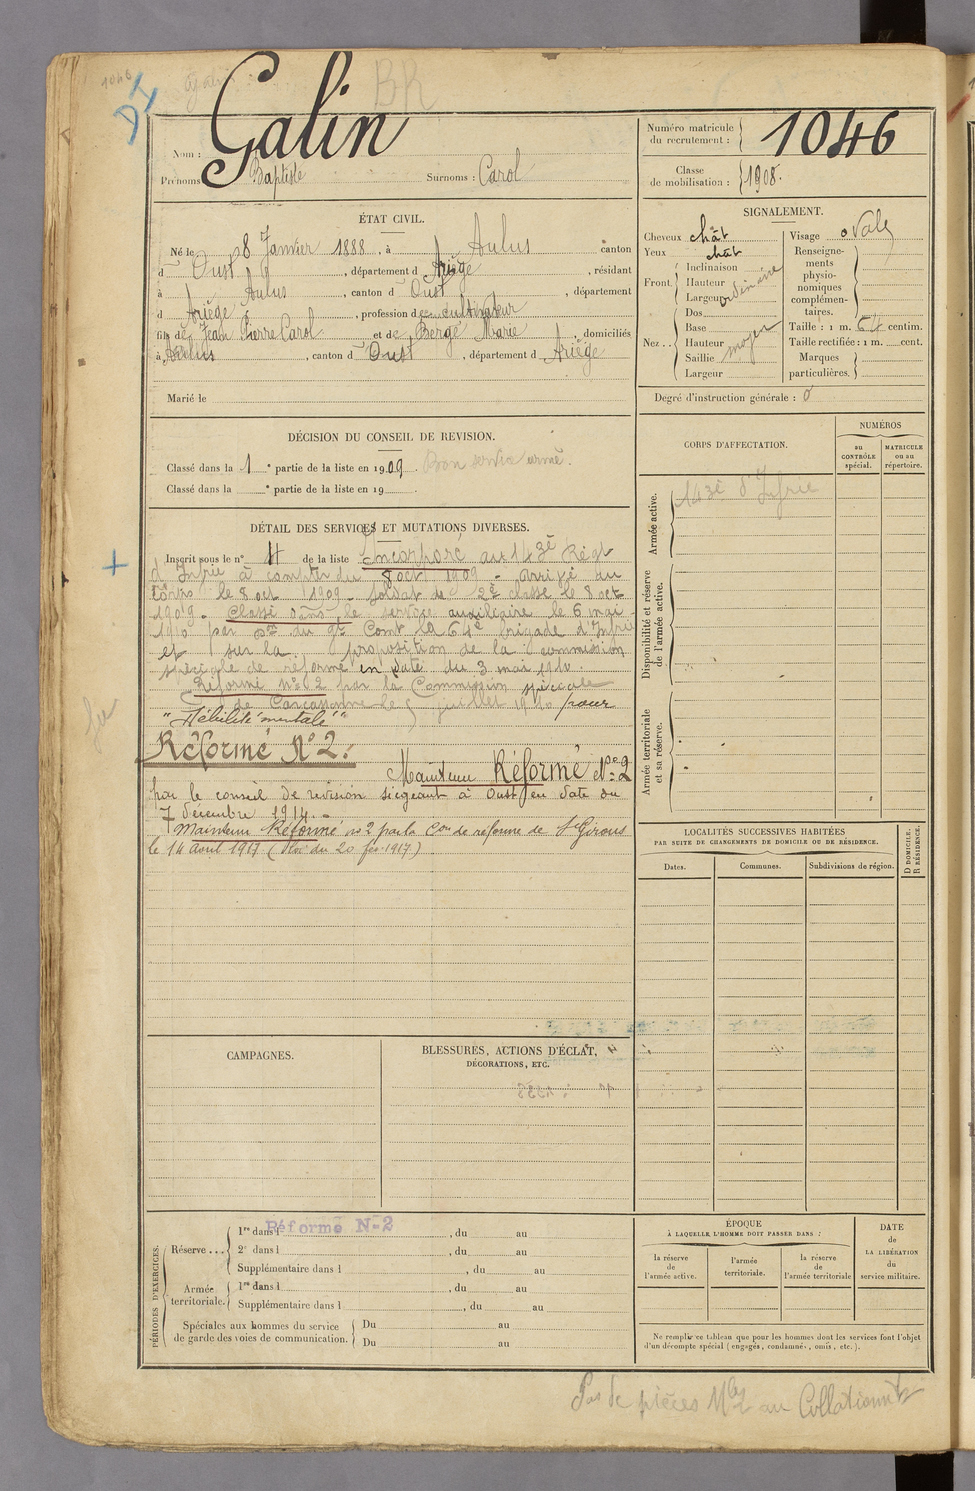 1046
BR
Nom : Galin
Prénoms : Baptiste Surnoms : Carol
Numéro matricule du recrutement : 1046
Classe de mobilisation : 1908.
ÉTAT CIVIL.
Né le 8 Janvier 1888, à Aulus canton
d Oust, département d Ariège, résidant
à Aulus, canton d Oust, département
d Ariège, profession de cultivateur
fils de Jean Pierre Carol et de Berge Marie, domiciliés
à Aulus, canton d Oust, département d Ariège
Marié le
SIGNALEMENT.
Cheveux chât
Yeux chât
Front. Inclinaison
Hauteur ordinaire
Largeur
Nez.. Dos
Base
Hauteur moyen
Saillie
Largeur
Visage ovale
Renseignements physionomiques complémentaires.
Taille : 1 m. 64 centim.
Taille rectifiée : 1 m. cent.
Marques particulières.
Degré d'instruction générale : 0
DÉCISION DU CONSEIL DE REVISION.
Classé dans la 1e partie de la liste en 1909. Bon service armé.
Classé dans la e partie de la liste en 19 .
CORPS D'AFFECTATION.
NUMÉROS
au CONTRÔLE spécial.
MATRICULE ou au répertoire.
Armée active.
143e d'Infrie
Disponibilité et réserve de l'armée active.
Armée territoriale et sa réserve.
DÉTAIL DES SERVICES ET MUTATIONS DIVERSES.
Inscrit sous le n° de la liste Incorporé au 143e Régt
d'Infrie à compter du 8 oct 1909 - Arrivé au
Corps le 8 oct 1909 - soldat de 2e classe le 8 oct
1909 - Classé dans le service auxiliaire le 6 mai
1910 par du gl Comt la 64e brigade d'Infrie
et sur la proposition de la commission
spéciale de réforme en date du 3 mai 1910.
Réformé n° 2 par la Commission spéciale
de Carcassonne le 5 juillet 1910 pour
"Débilité mentale"
Réformé N° 2.
Maintenu Réformé N° 2
par le conseil de revision siégeant à Oust en date du
7 décembre 1914.-
Maintenu Réformé n° 2 par la Con de réforme de St Girons
le 14 Avril 1917 (Loi du 20 fev. 1917)
LOCALITÉS SUCCESSIVES HABITÉES
PAR SUITE DE CHANGEMENTS DE DOMICILE OU DE RÉSIDENCE.
D DOMICILE. R RÉSIDENCE.
Dates.
Communes.
Subdivisions de région.
CAMPAGNES.
BLESSURES, ACTIONS D'ÉCLAT,
DÉCORATIONS, ETC.
PÉRIODES D'EXERCICES.
Réformé N°2
Réserve... 1re dans l , du au
2e dans l , du au
Supplémentaire dans l , du au
Armée territoriale. 1re dans l , du au
Supplémentaire dans l , du au
Spéciales aux hommes du service de garde des voies de communication. Du au
Du au
ÉPOQUE
À LAQUELLE L'HOMME DOIT PASSER DANS :
la réserve de l'armée active.
l'armée territoriale.
la réserve de l'armée territoriale
DATE de LA LIBÉRATION du service militaire.
Ne remplir ce tableau que pour les hommes dont les services font l'objet
d'un décompte spécial (engagés, condamnés, omis, etc.).
Pas de pièces au Collationnt